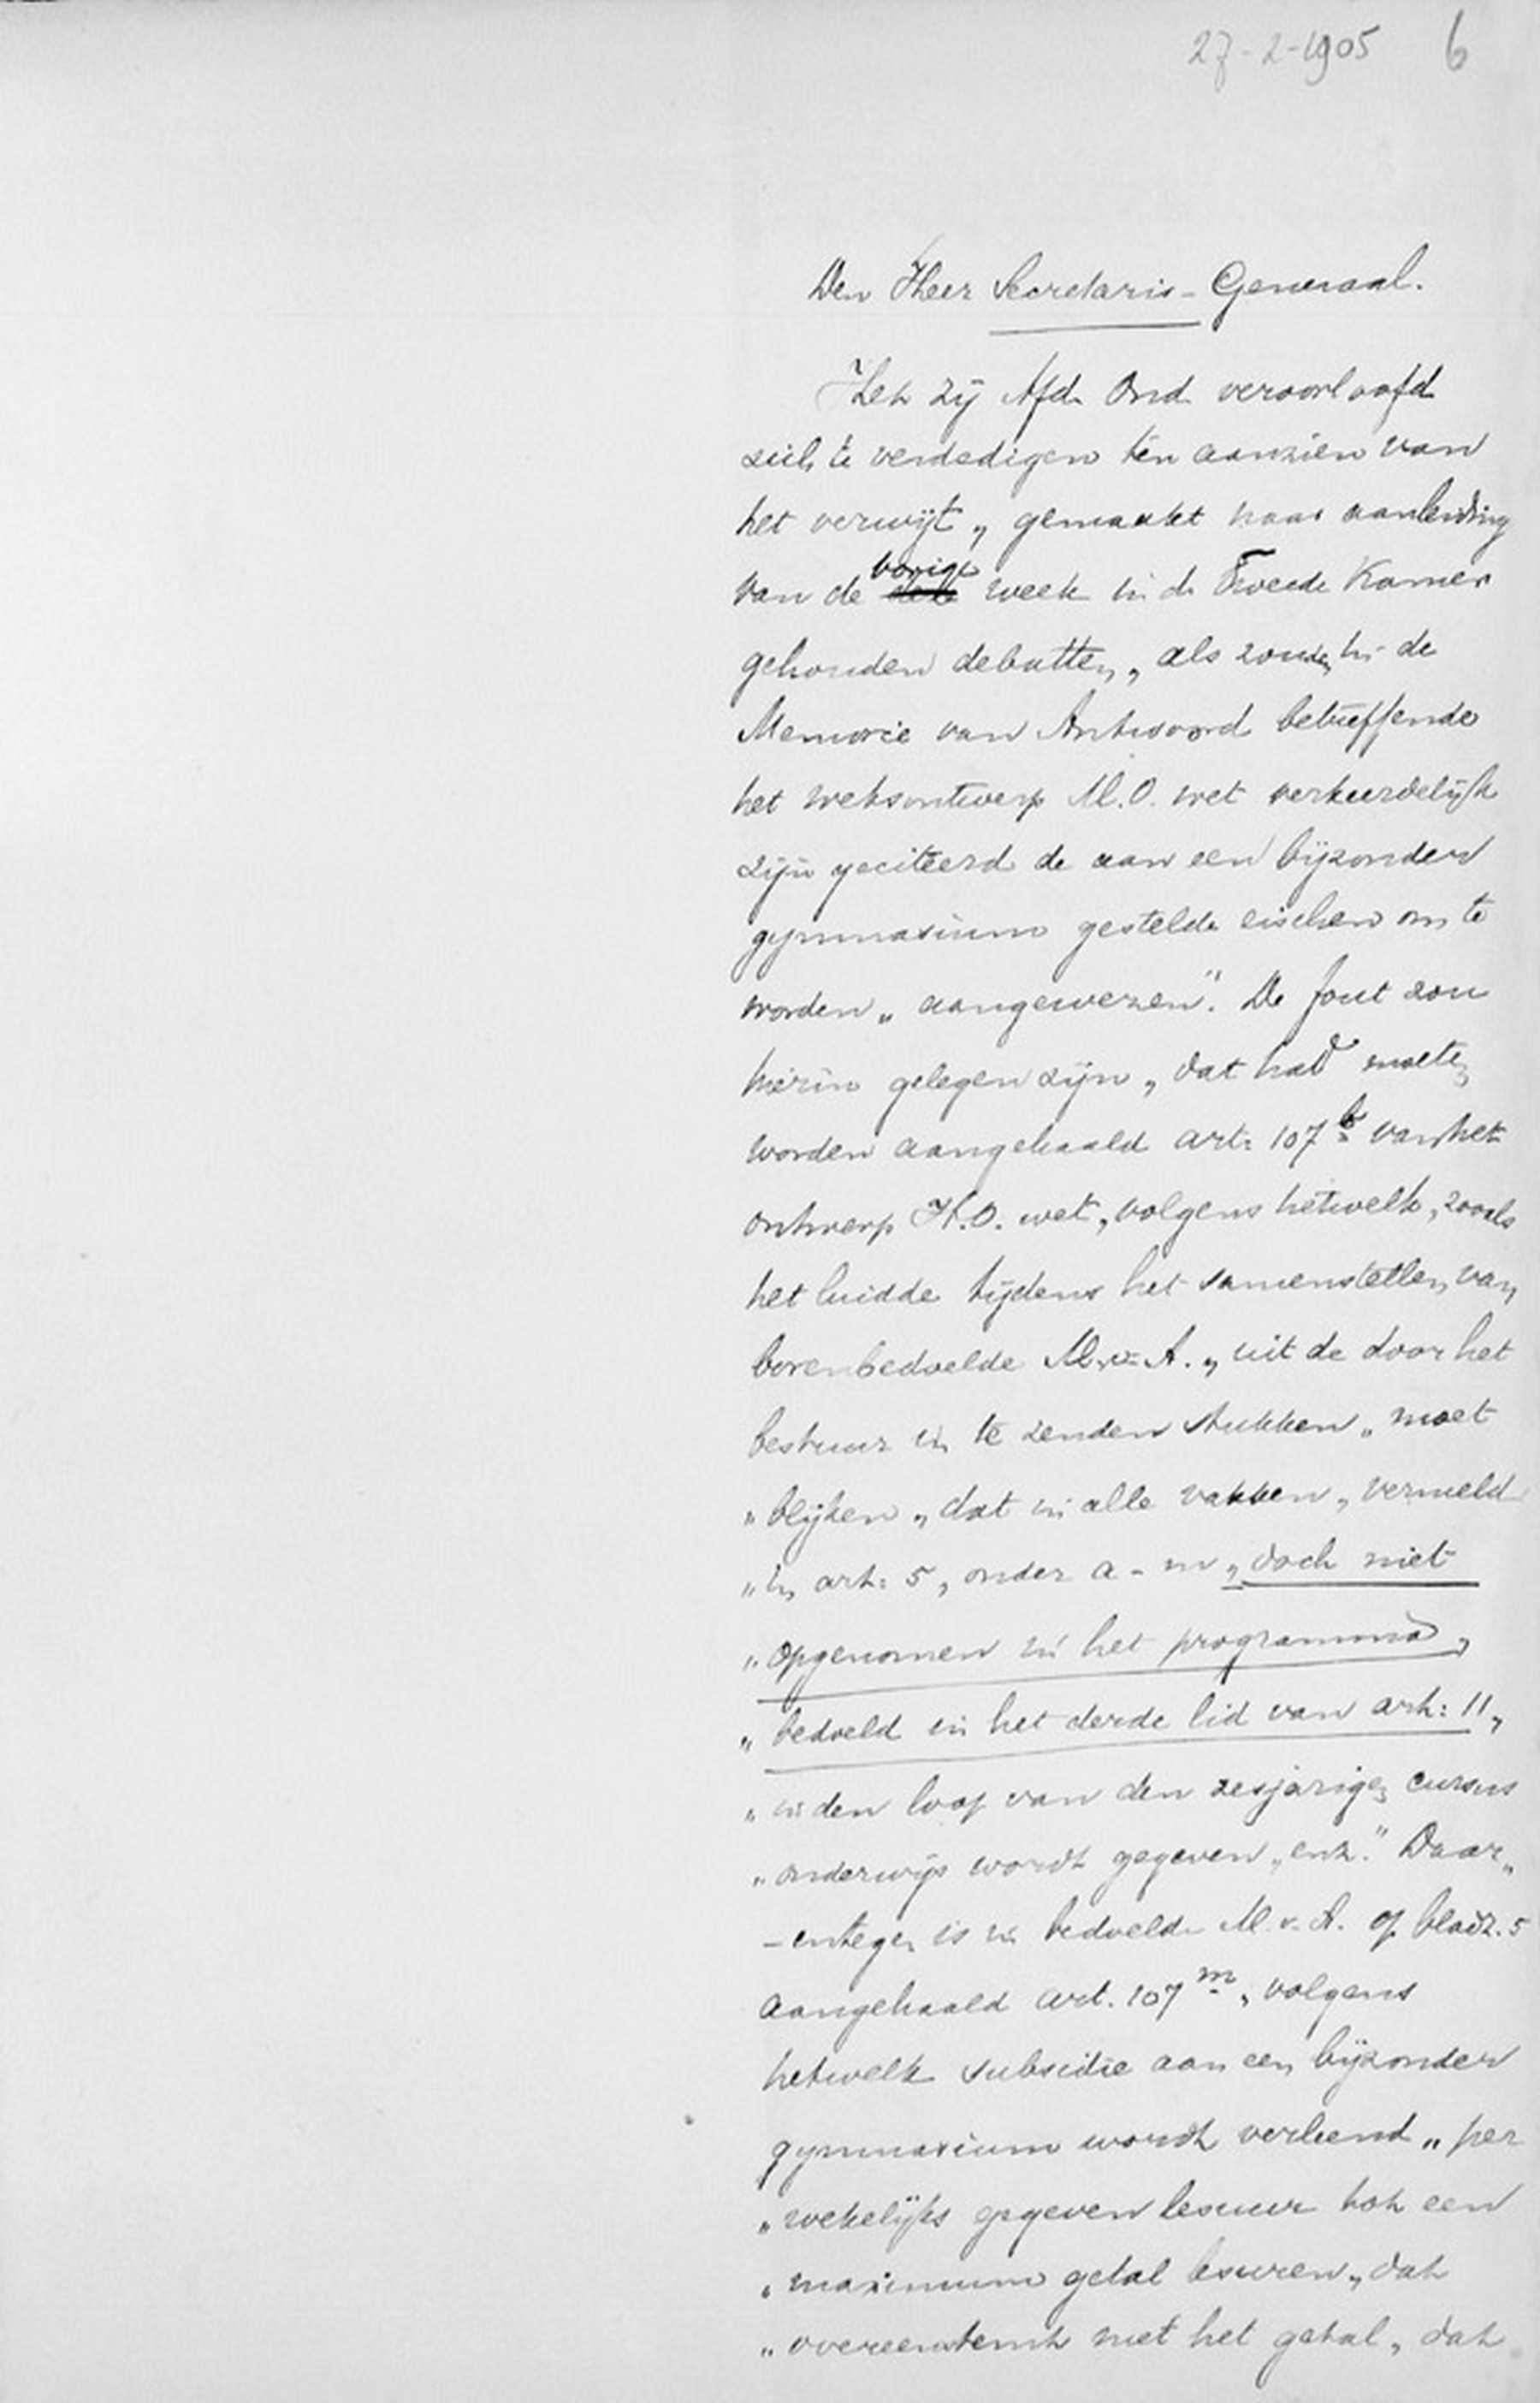 27-2-1905 6
Den Heer Secretaris-Generaal.
Het zij Afd. Ond. veroorloofd
zich te verdedigen ten aanzien van
het verwijt, gemaakt naar aanleiding
van de vorige week in de Tweede Kamer
gehouden debatten, als zouden in de
Memorie van Antwoord betreffende
het wetsontwerp M.O. wet verkeerdelijk
zijn geciteerd de aan een bijzonder
gymnasium gestelde eischen om te
worden „aangewezen". De fout zou
hierin gelegen zijn, dat had moeten
worden aangehaald art: 107 b van het
ontwerp H.O. wet, volgens hetwelk, zooals
het luidde tijdens het samenstellen van
bovenbedoelde M.v.A., uit de door het
bestuur in te zenden stukken „moet
„blijken, dat in alle vakken, vermeld
„in art: 5, onder a - m, doch niet
„opgenomen in het programma,
„bedoeld in het derde lid van art: 11,
„in den loop van den zesjarigen cursus
„onderwijs wordt gegeven, enz." Daar„
-entegen is in bedoelde M.v.A. op bladz. 5
aangehaald art. 107 m, volgens
hetwelk subsidie aan een bijzonder
gymnasium wordt verleend „per
„wekelijks gegeven lesuur tot een
„maximum getal lesuren, dat
„overeenstemt met het getal, dat